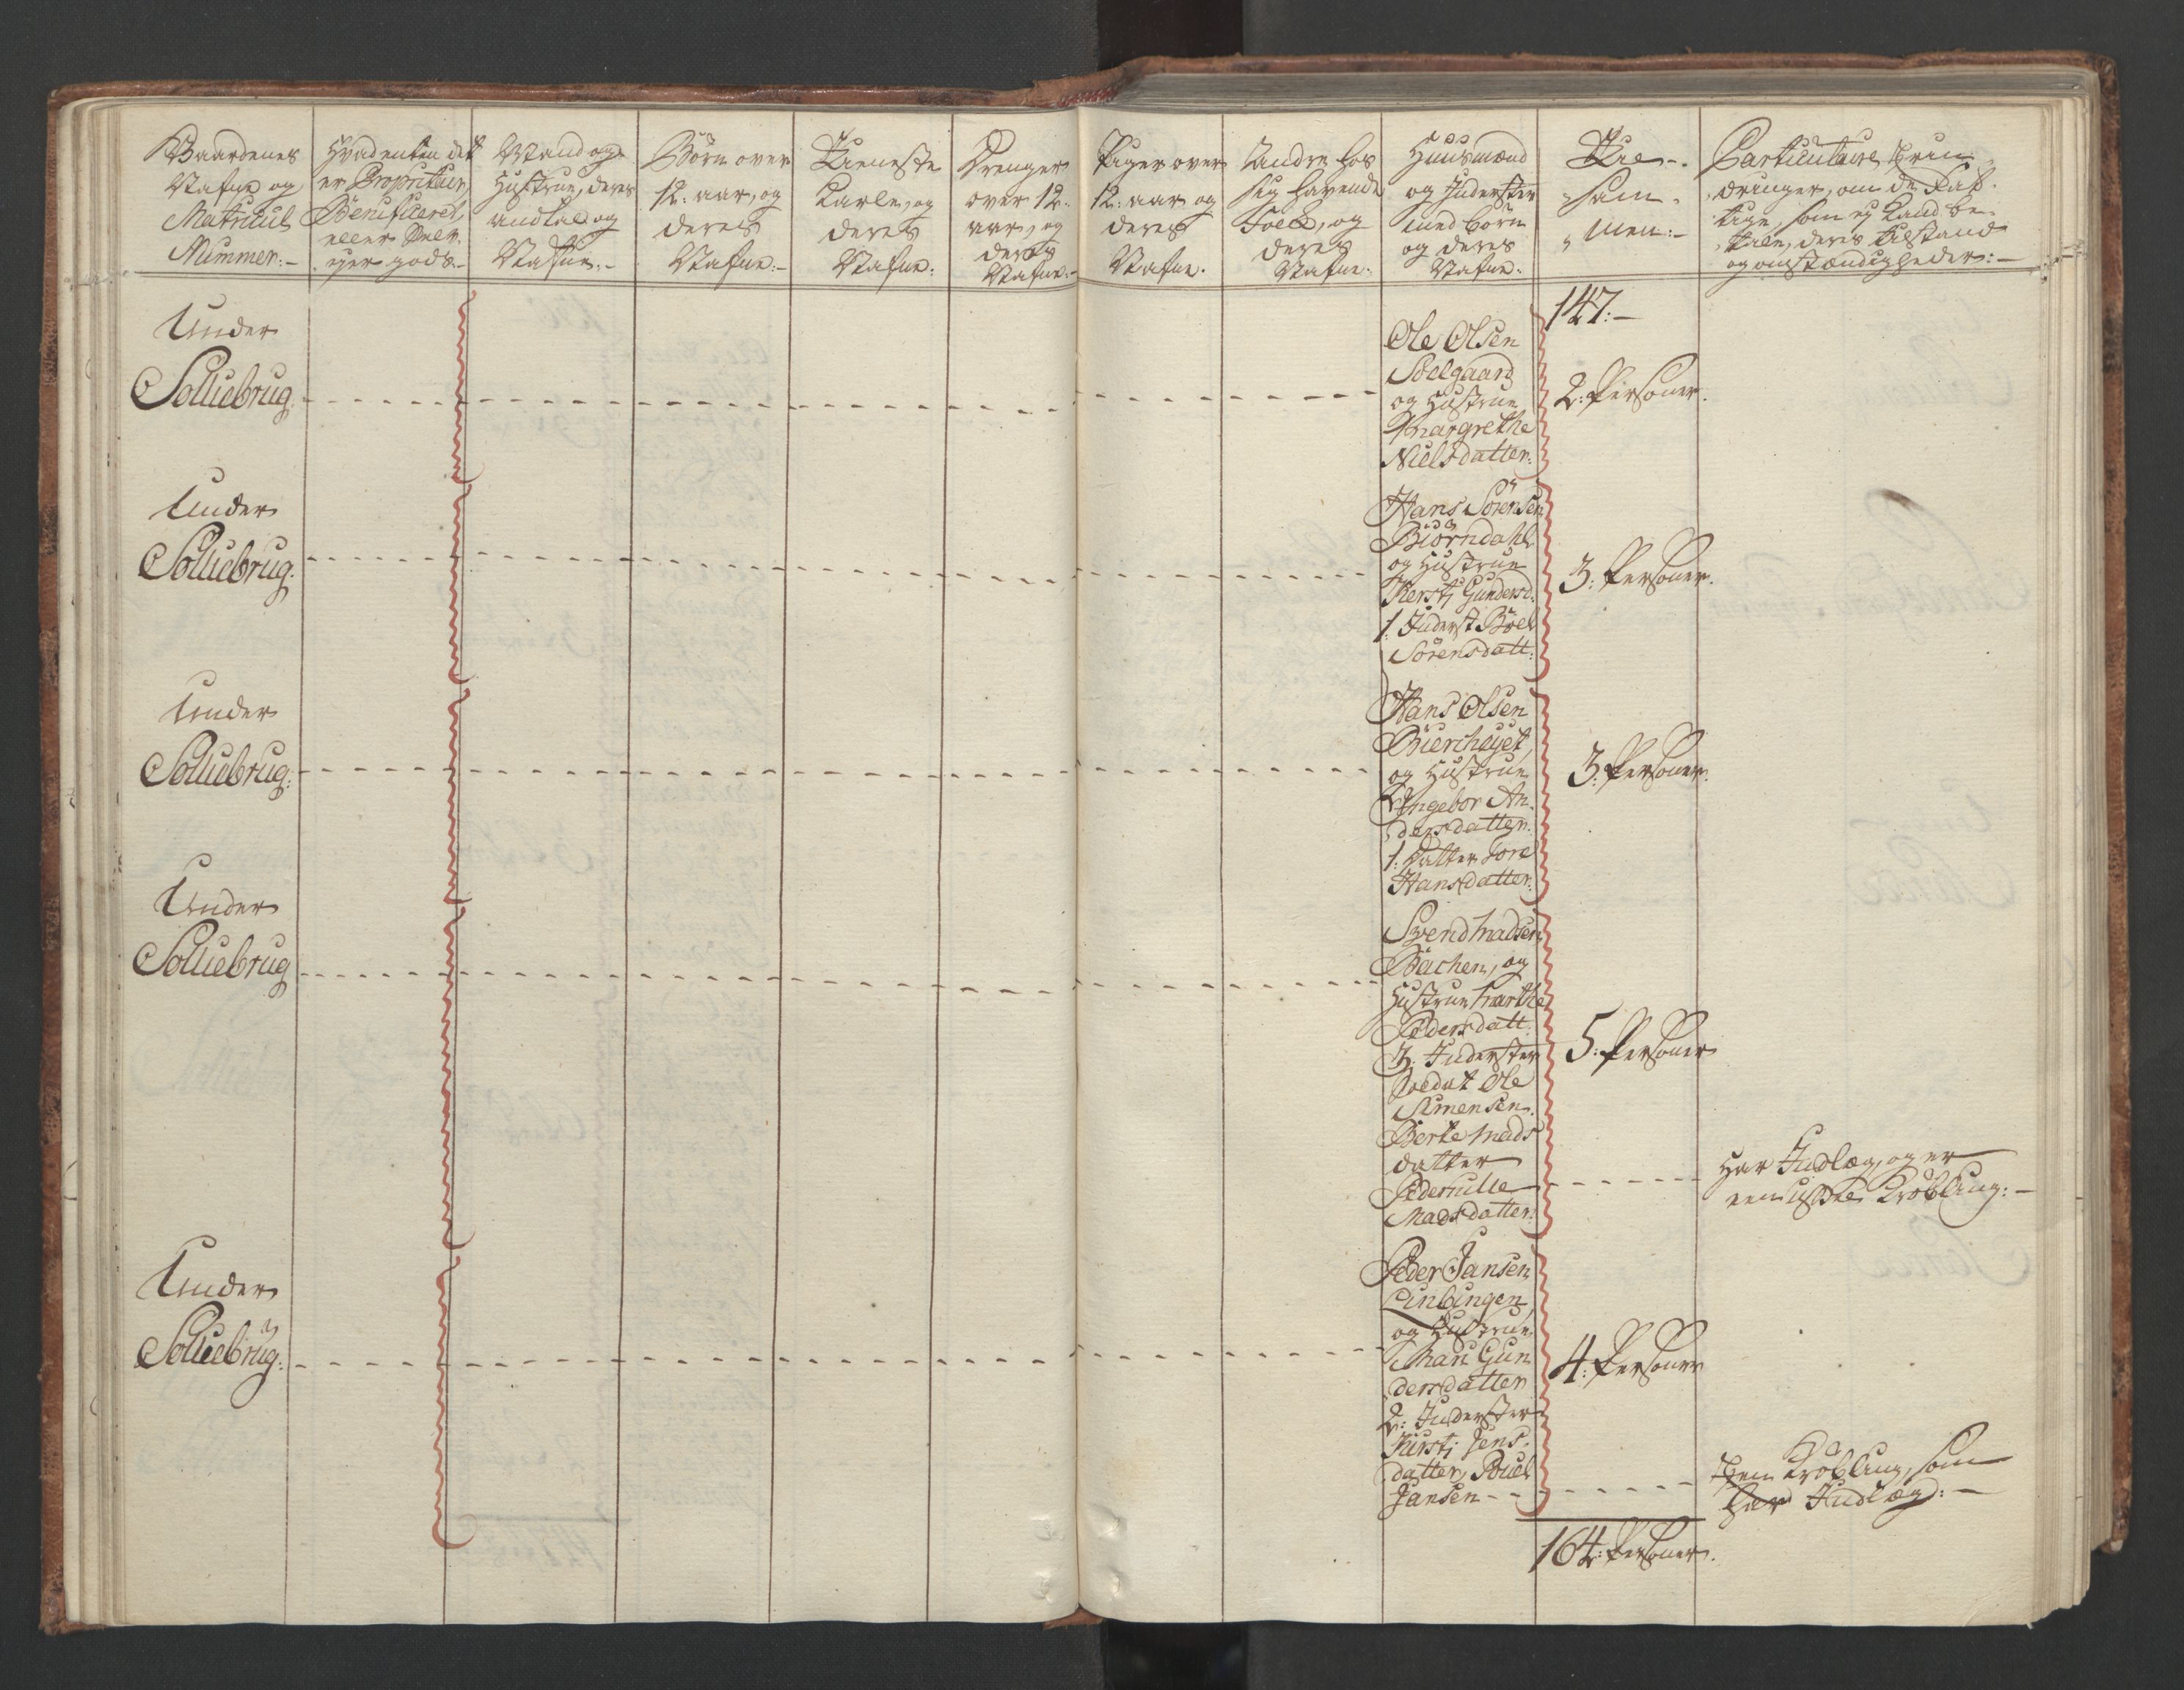 Gaardenes
Nafne og
Matricul
Nummer:-
Hvad enten det
er Propritair,
Benificeret,
eller Selv-
eyer gods.-
Mand og
Hustrue, deres
andtal og
Nafne.-
Börn over
12. aar, og
deres
Nafne.-
Tieneste
Karle, og
deres
Nafne:
Drenger
over 12.
aar, og
deres
Nafne.-
Piger over
12. aar og
deres
Nafne.
Andre hos
sig havende
Folck, og
deres
Nafne.
Huusmænd
og Inderster
med börn
og deres
Nafne.
Til-
sam-
men:-
Particulaire Erin-
dringer, om de Fat-
tige, som ey kand be-
tale, deres tilstand
og omstændigheder:-
147:-
Under
Solliebrug.
Ole Olsen
Soelgaard
og Hustrue
Margrethe
Nielsdatter:
2: Personer.
Under
Solliebrug.
Hans Sörensen
Biörndahl
og Hustrue
Kersti Gundersd:
1. Inderst Böel
Sörensdatt:
3: Personer.
Under
Solliebrug:
Hans Olsen
og Hustrue
Ingebor An-
dersdatter.
1. Datter Sore
Hansdatter:
3: Personer.
Under
Solliebrug
Svend Madsen
Bachen, og
Hustrue Marthe
Pedersdatt:
3. Inderster
Soldat Ole
Simensen.
Berte Mads
datter
Pedernille
Madsdatter:
5: Personer
Har Indlæg, og er
een usSel Kröbling:-
Under
Solliebrug:
Peder Jansen
Linbingen,
og Hustrue
Mari Gun
dersdatter
2: Inderster
Kirsti Jens-
datter, Pouel
Jansen - -
4: Personer
Een Kröbling, som
har Indlæg:-
164: Personer.